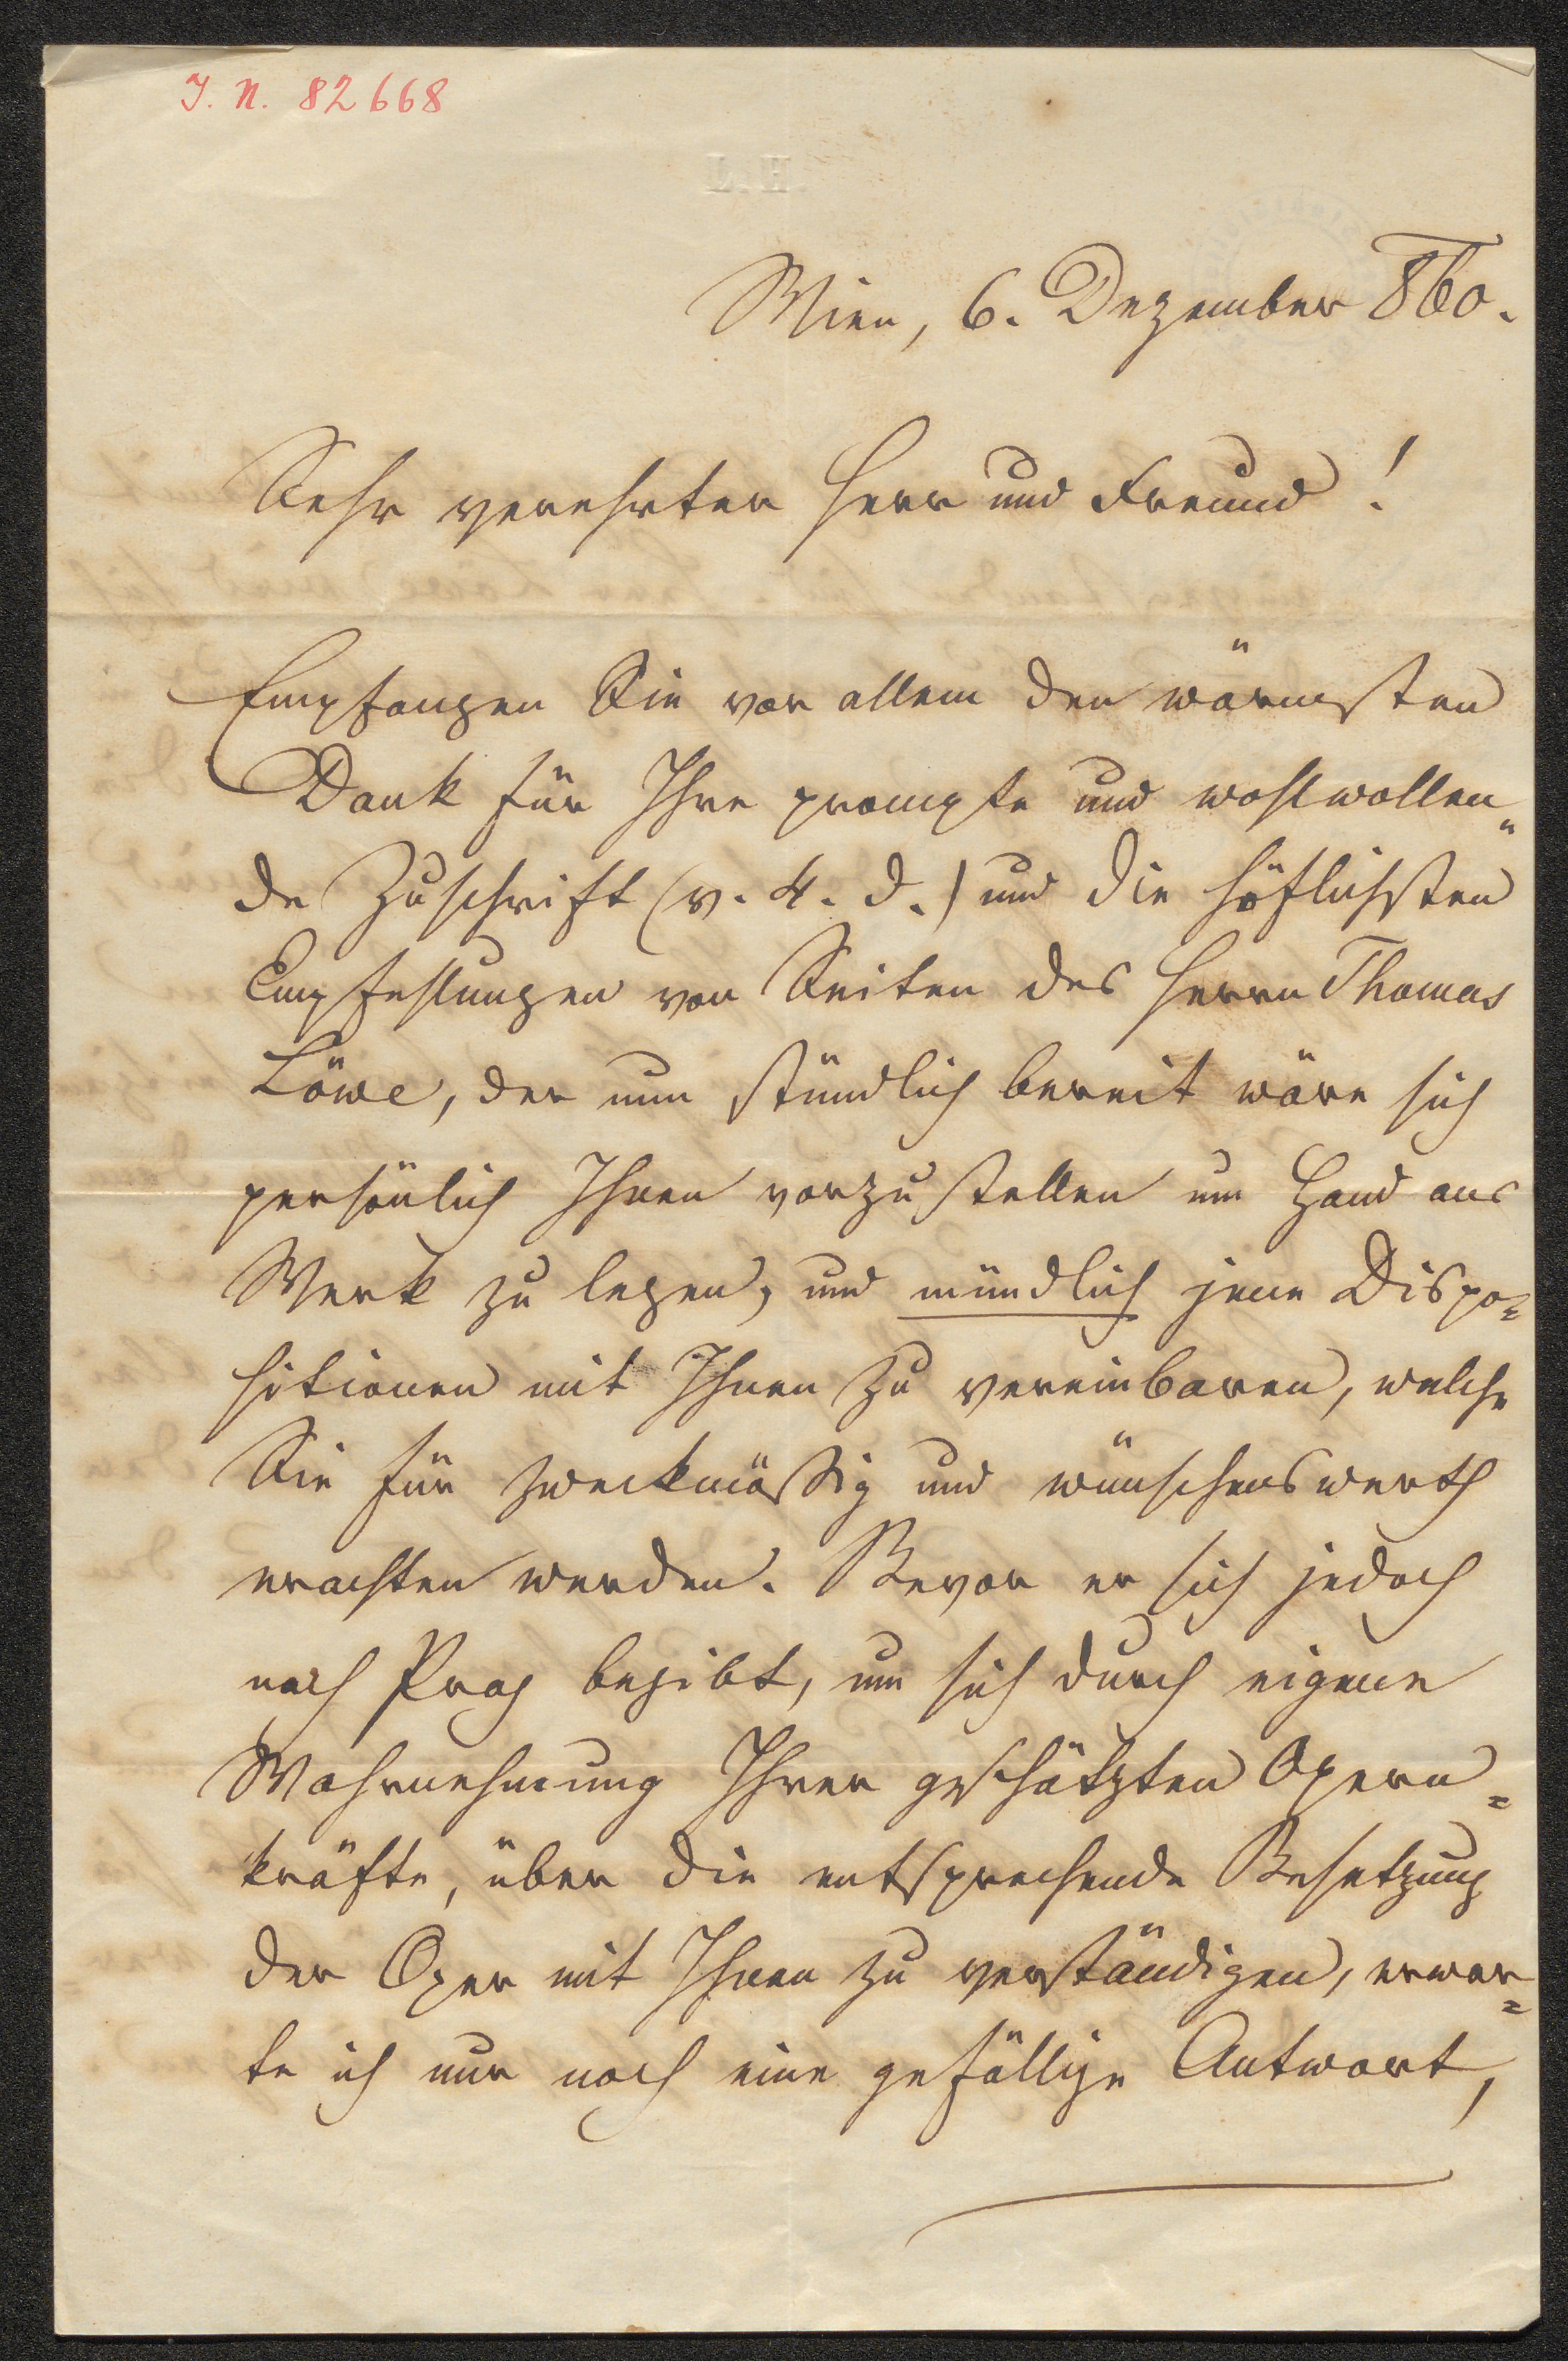 I. N. 82668
L.H.
Wien, 6. Dezember 860.
Sehr verehrter Herr und Freund!
Empfangen Sie vor allem den wärmsten
Dank für Ihre prompte und wohlwollen„
de Zuschrift (v. 4. d.) und die höflichsten
Empfehlungen von Seiten des Herrn Thomas
Löwe, der nun stündlich bereit wäre sich
persönlich Ihnen vorzustellen um Hand ans
Werk zu legen, und mündlich jene Dispo=
sitionen mit Ihnen zu vereinbaren, welche
Sie für zweckmäßig und wünschenswerth
erachten werden. Bevor er sich jedoch
nach Prag begibt, um sich durch eigene
Wahrnehmung Ihrer geschätzten Opern=
kräfte, über die entsprechende Besetzung
der Oper mit Ihnen zu verständigen, erwar=
te ich nur noch eine gefällige Antwort,